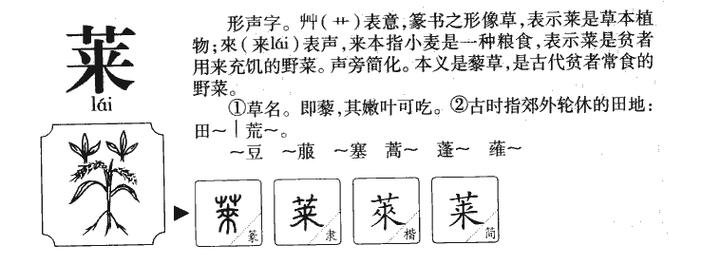 莱
lái
形声字。艸(艹)表意,篆书之形像草,表示莱是草本植
物;來(来lái)表声,来本指小麦是一种粮食,表示菜是贫者
用来充饥的野菜。声旁简化。本义是藜草,是古代贫者常食的
野菜。
①草名。即藜,其嫩叶可吃。②古时指郊外轮休的田地:
田～｜荒～。
～豆 ～菔 ～塞 蒿～ 蓬～ 蓷～
萊 莱 萊 莱
篆 隶 楷 简